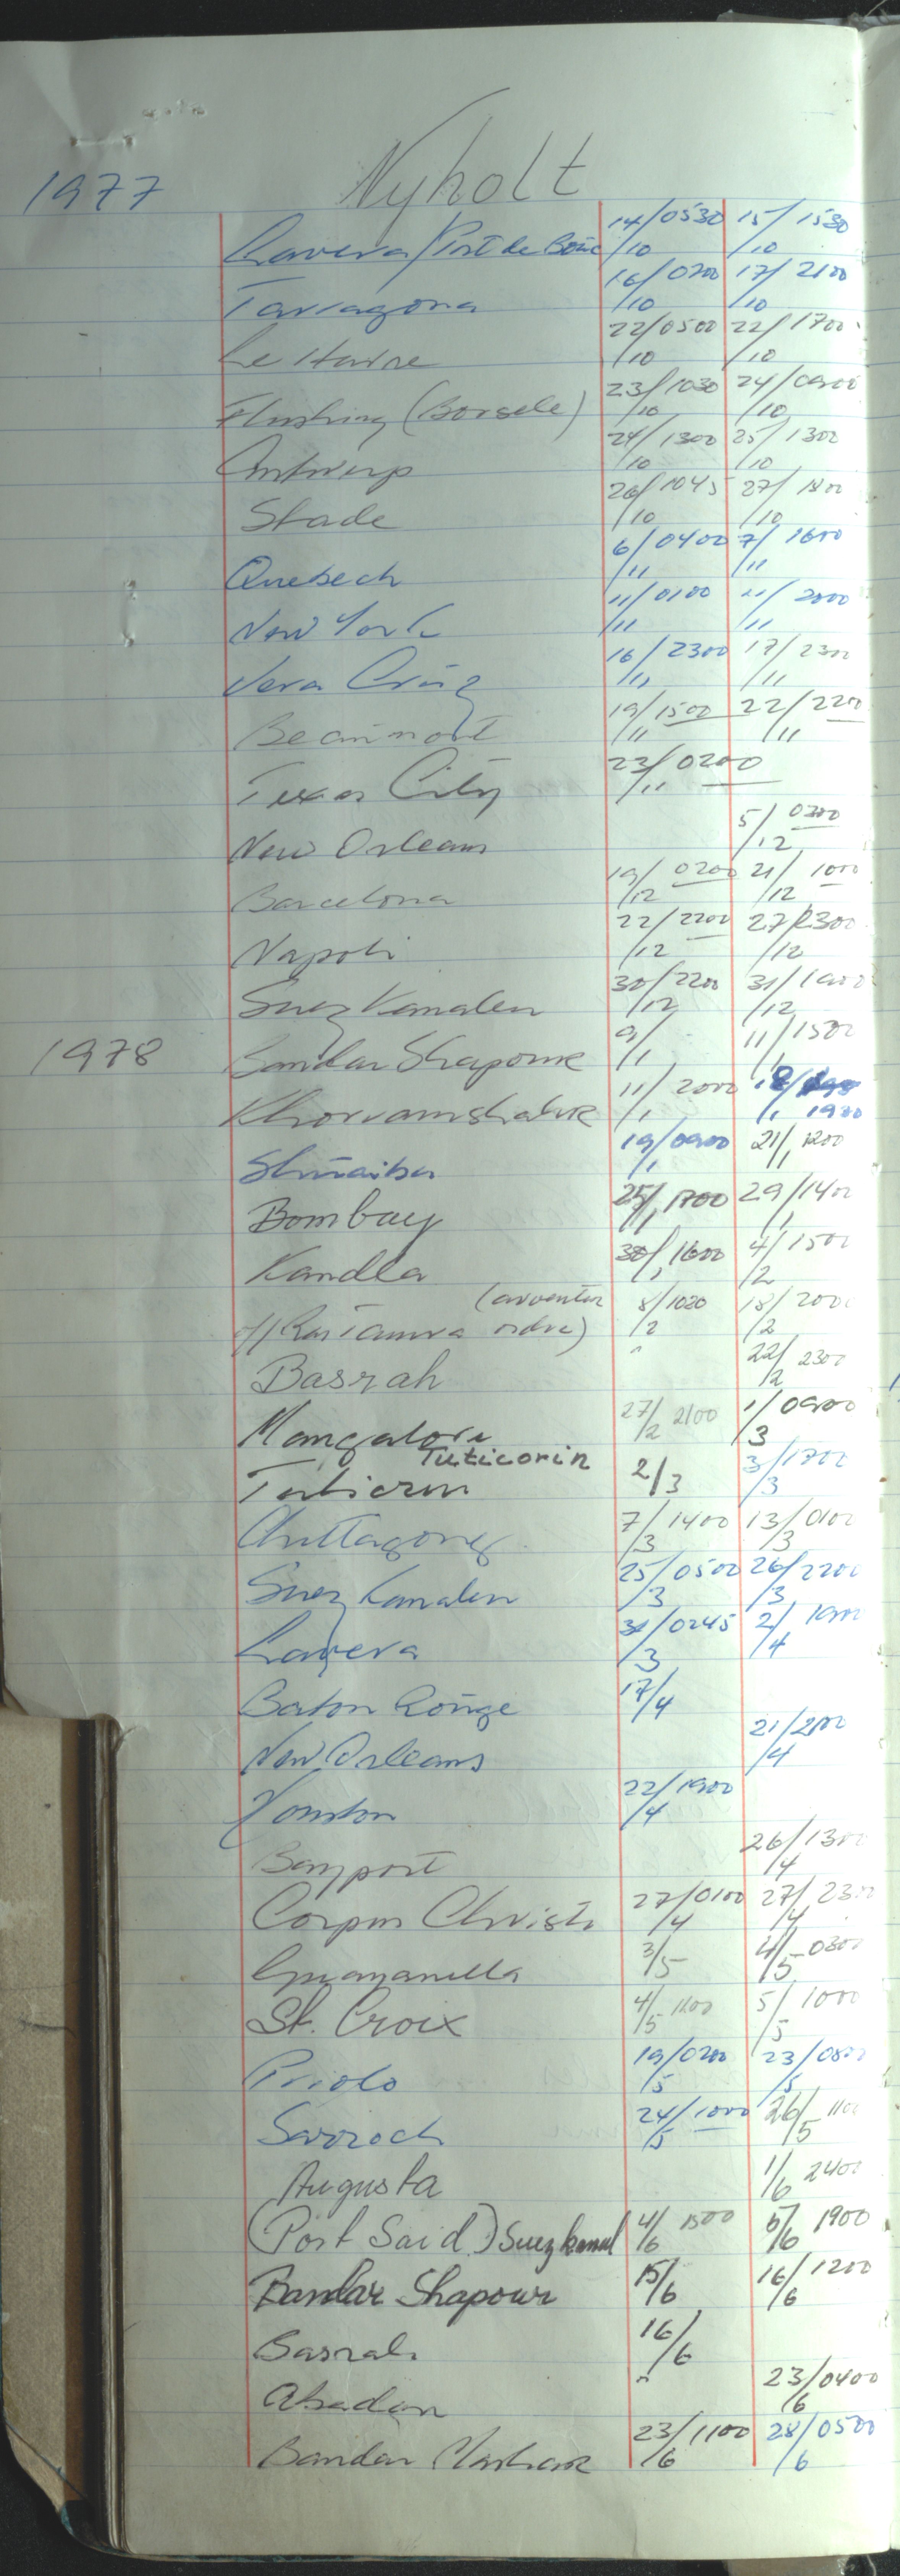 1977 Nyholt
Lavera/Port de Bouc 14/10 0530 15/10 1530
Tarragona 16/10 0200 17/10 2100
Le Havre 22/10 0500 22/10 1700
Flushing (Borsele) 23/10 1030 24/10 0900
Antwerp 24/10 1300 25/10 1300
Stade 26/10 1045 27/10 1800
Quebech 6/11 0400 7/11 1600
New York 11/11 0100 11/11 2000
Vera Cruz 16/11 2300 17/11 2300
Beaumont 19/11 1500 22/11 2200
Texas City 23/11 0200
New Orleans 5/12 0300
Barcelona 19/12 0200 21/12 1000
Napoli 22/12 2200 27/12 2300
Suez Kanalen 30/12 2200 31/12 1900
1978 Bandar Shapour 9/1 11/1 1500
Khorramshahr 11/1 2000 18/1 1930
Shuaiba 19/1 0900 21/1 1200
Bombay 25/1 1700 29/1 1400
Kandla 30/1 1600 4/2 1500
(avventer
Ras Tanura ordre) 8/2 1020 18/2 2000
Basrah 22/2 2300
Mangalore 27/2 2100 1/3 0900
Tuticorin
Tuticorin 2/3 3/3 1700
Chittagong 7/3 1400 13/3 0100
Suez Kanalen 25/3 0500 26/3 2200
Lavera 31/3 0245 2/4 1900
Baton Rouge 17/4
New Orleans 21/4 2100
Houston 22/4 1900
Bayport 26/4 1300
Corpus Christi 27/4 0100 27/4 2300
Guayanilla 3/5 4/5 0300
St. Croix 4/5 1100 5/5 1000
Priolo 19/5 0200 23/5 0800
Sarroch 24/5 1000 26/5 1100
Augusta 1/6 2400
(Port Said) Suezkanal 4/6 1500 5/6 1900
Bandar Shapour 15/6 16/6 1200
Basrah 16/6
Abadan " 23/6 0400
Bandar Mashur 23/6 1100 28/6 0500